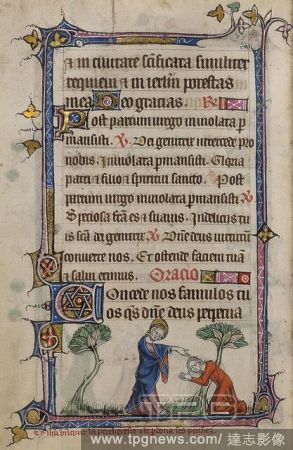 & in ciuitate scificata similiter
requieui & in ierlm potestas
mea Deo gracias. R
Post partum uirgo inuiolata p
mansisti. V Dei genitrix intercede pro
nobis. Inuiolata pmansisti. Gloria
patri & filio & spiritui sancto. Post
partum uirgo inuiolata pmansisti.
V Speciosa fca es & suauis. In deliciis tu
is sca dei genitrix. V Dne deus uirtutum
conuerte nos. Et ostende faciem tuam
& salui erimus. Oracio
Concede nos famulos tu
os qs dne deus perpetua
達志影像
www.tpgnews.com / 達志影像